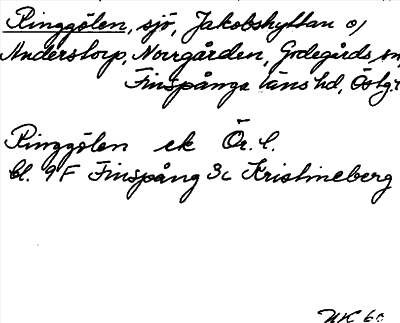 Ringgölen, sjö, Jakobshyttan o/
Anderstorp, Norrgården, Godegårds sn,
Finspånga läns hd, Östg.
Ringgölen ek Ör. l.
bl. 9F Finspång 3c Kristineberg